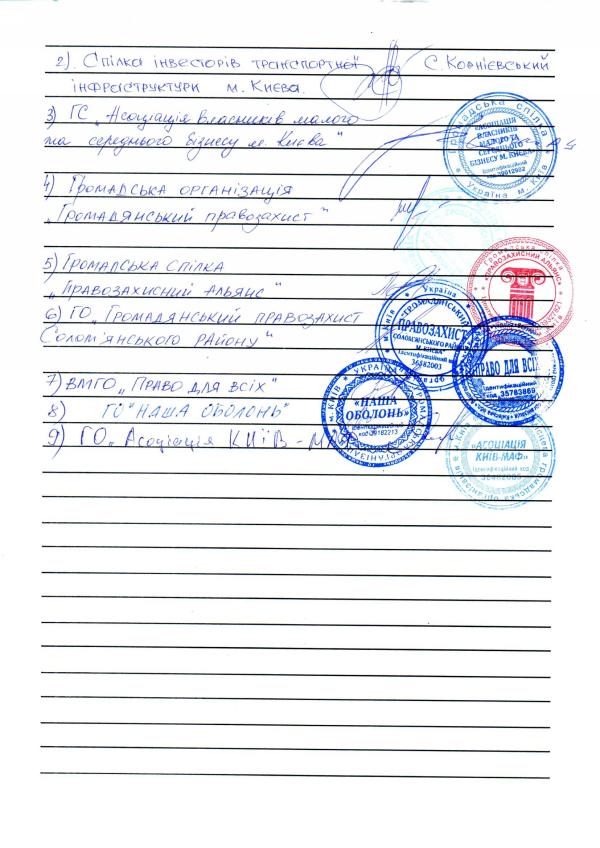 2). Спілка інвесторів транспортної С. Ковнієвський
інфраструктури м. Києва.
3) ГС „Асоціація власників малого
та середнього бізнесу м. Києва"
ГРОМАДСЬКА СПІЛКА
«АСОЦІАЦІЯ
ВЛАСНИКІВ
МАЛОГО ТА
СЕРЕДНЬОГО
БІЗНЕСУ М. КИЄВА»
Ідентифікаційний
Україна м. Київ
4) Громадська організація
„Громадянський правозахист"
5) Громадська спілка
„Правозахисний Альянс"
Громадська спілка
«ПРАВОЗАХИСНИЙ АЛЬЯНС»
6) ГО „Громадянський правозахист
Солом'янського району"
Україна
м. Київ
«ГРОМАДЯНСЬКИЙ
ПРАВОЗАХИСТ
СОЛОМ'ЯНСЬКОГО РАЙОНУ
М. КИЄВА»
Ідентифікаційний
36882003
7) ВМГО „Право для всіх"
ПРАВО ДЛЯ ВСІХ
Ідентифікаційний
код 35783869
8) ГО "Наша Оболонь"
м. КИЇВ УКРАЇНА
«НАША
ОБОЛОНЬ»
Ідентифікаційний
код 39182213
9) ГО „Асоціація Київ -
«АСОЦІАЦІЯ
КИЇВ-МАФ»
Ідентифікаційний код